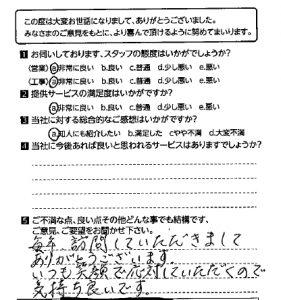 この度は大変お世話になりまして、ありがとうございました。
みなさまのご意見をもとに、より喜んで頂けるように努めてまいります。
1 お伺いしております、スタッフの態度はいかがでしょうか?
(営業) a非常に良い b.良い c.普通 d.少し悪い e.悪い
(工事) a非常に良い b.良い c.普通 d.少し悪い e.悪い
2 提供サービスの満足度はいかがですか?
a非常に良い b.良い c.普通 d.少し悪い e.悪い
3 当社に対する総合的なご感想はいかがですか?
a知人にも紹介したい b.満足した cやや不満 d.大変不満
4 当社に今後あれば良いと思われるサービスはありますでしょうか?
5 ご不満な点、良い点その他どんな事でも結構です、
ご意見、ご要望をお聞かせ下さい。
毎年、訪問していただきまして
ありがとうございます。
いつも笑顔で応対していただくので
気持ち良いです。